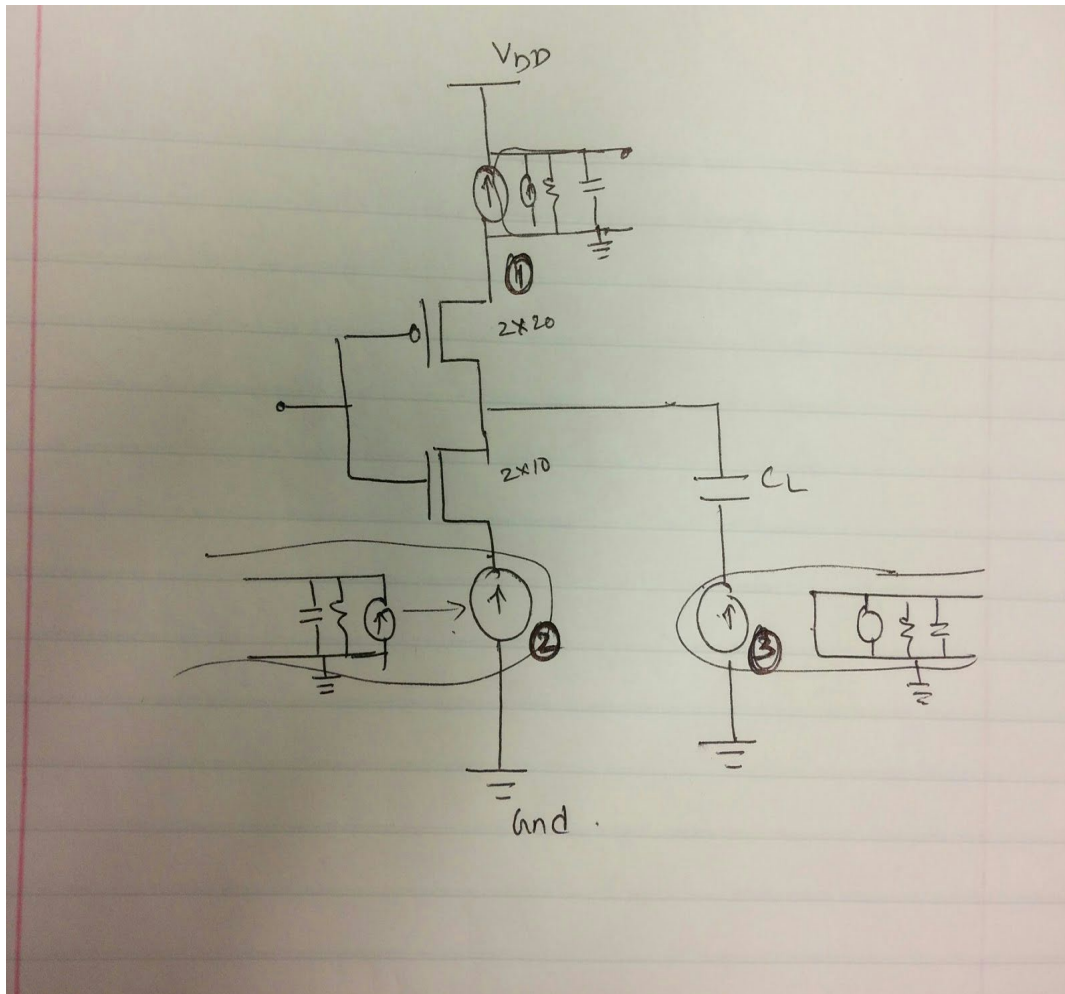 VDD
1
2×20
2×10
CL
2
3
Gnd.